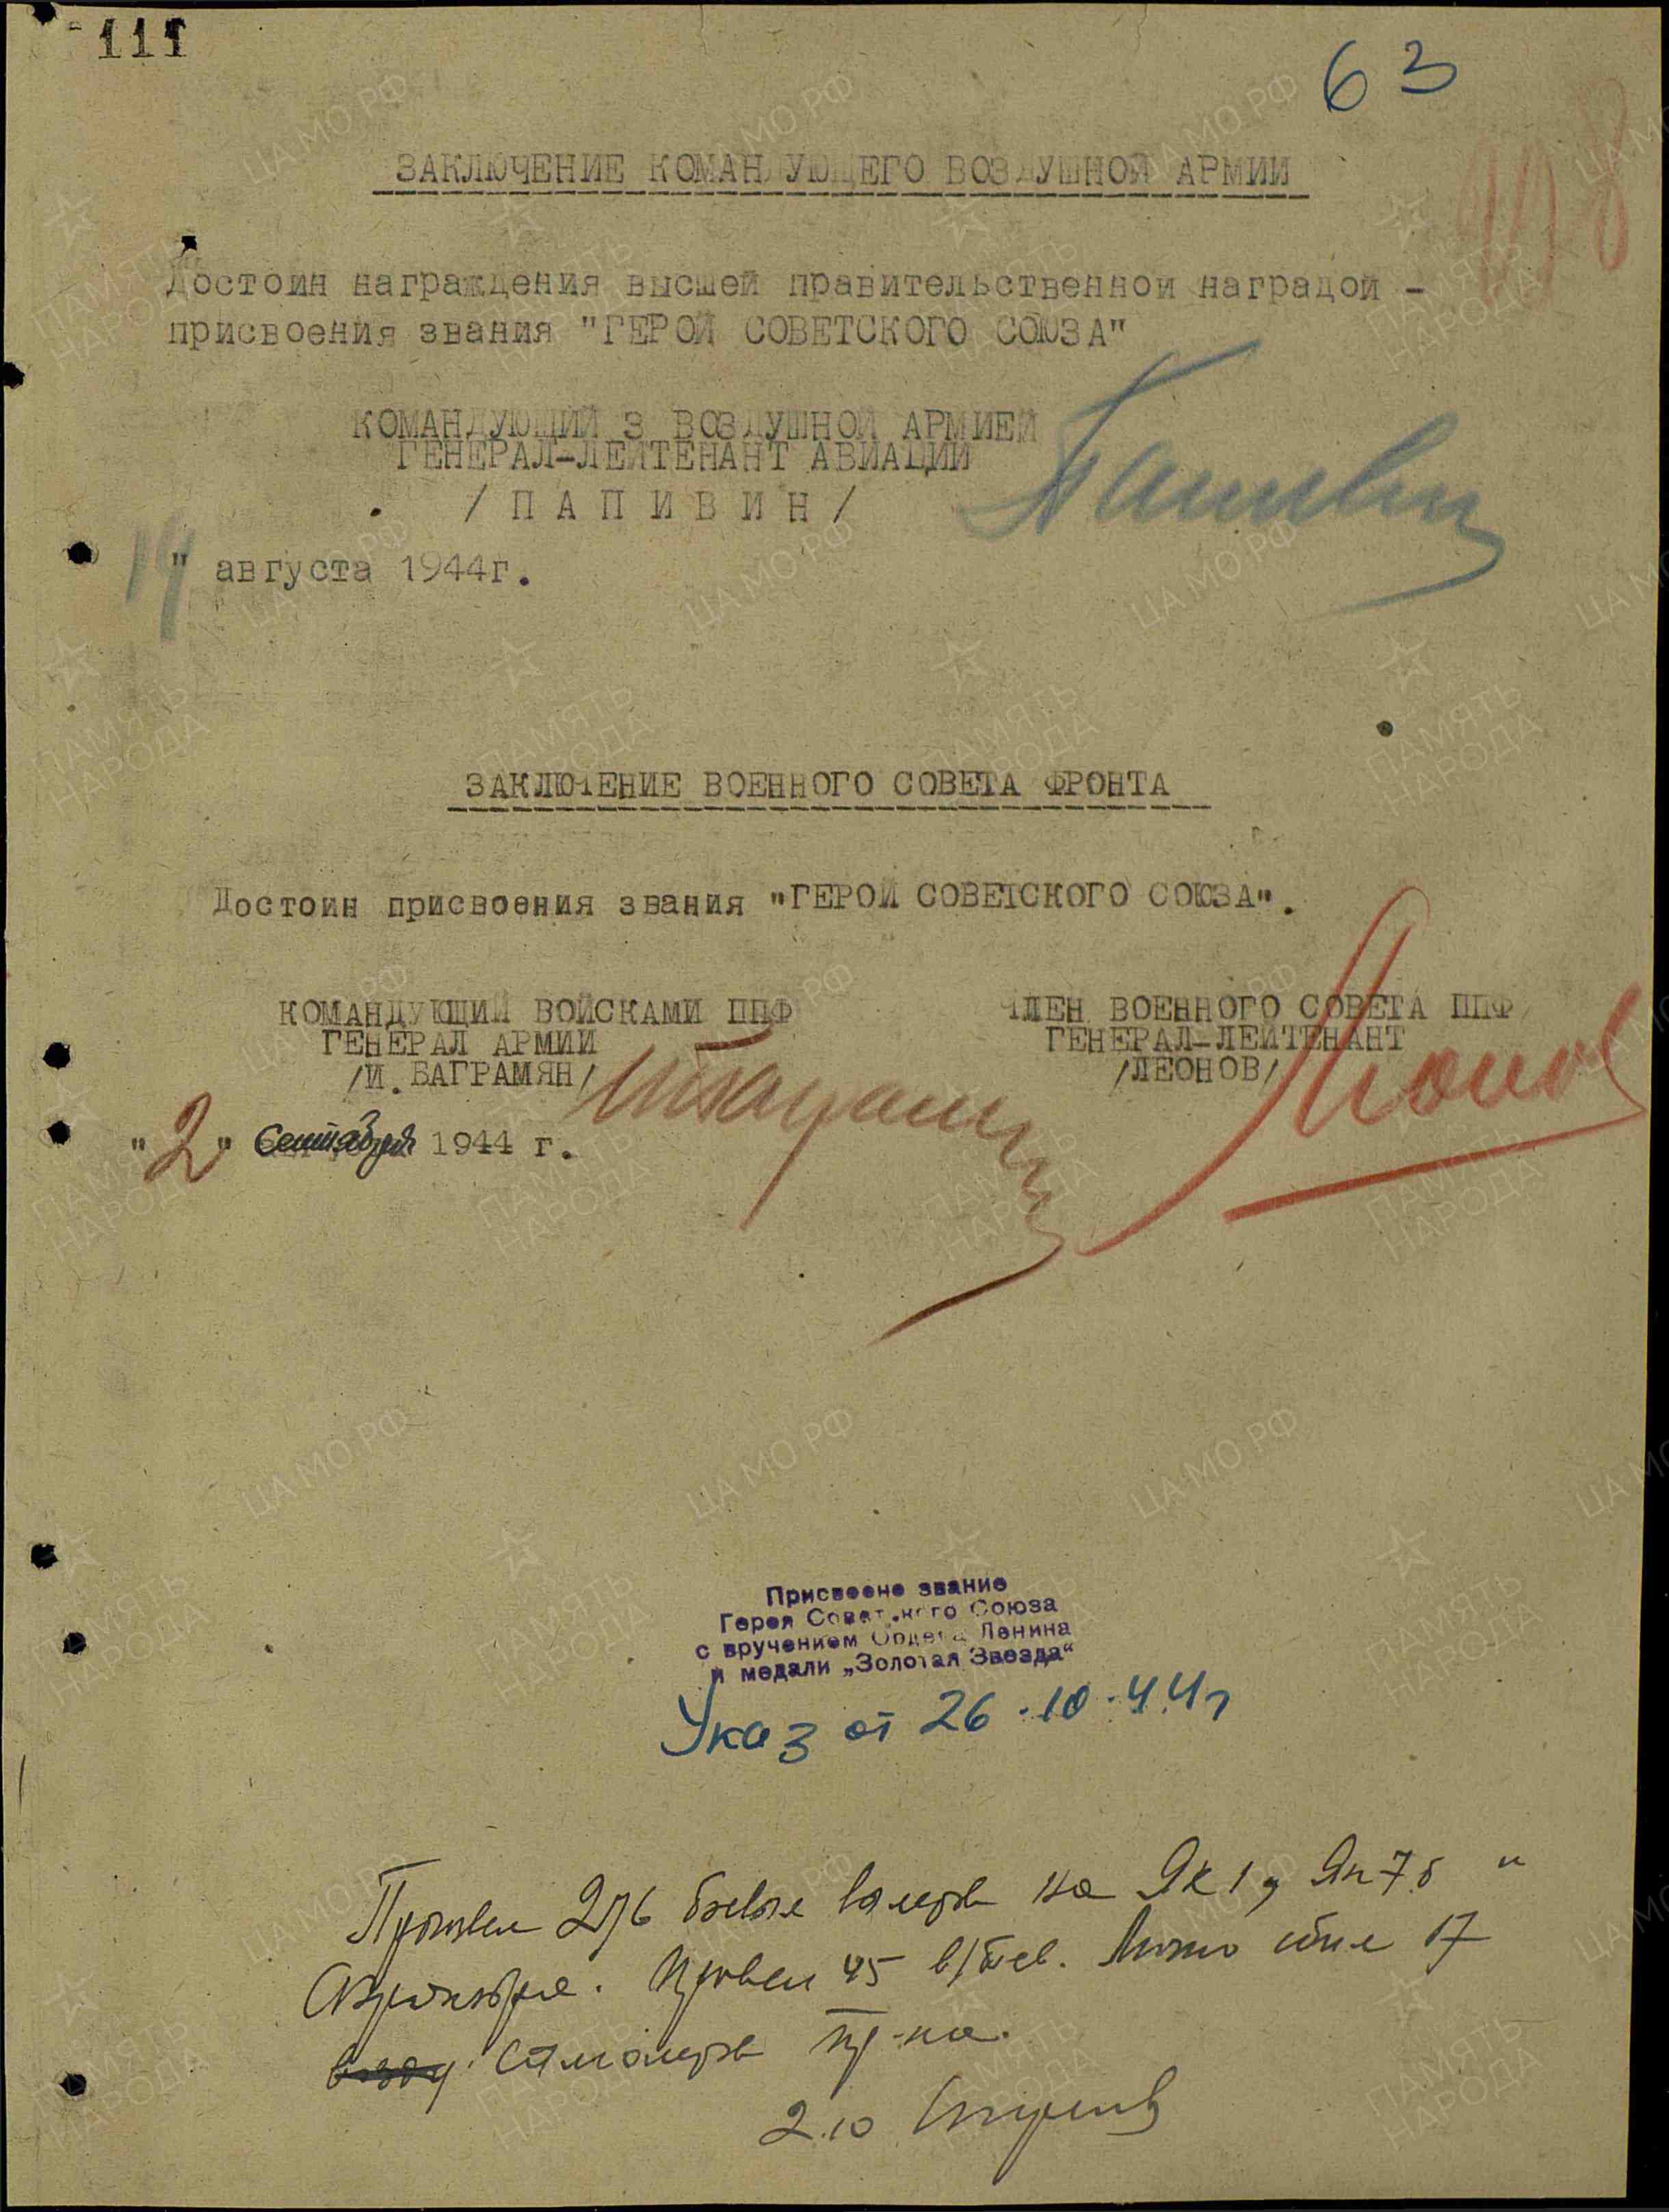 111
63
ЗАКЛЮЧЕНИЕ КОМАНДУЮЩЕГО ВОЗДУШНОЙ АРМИИ
Достоин награждения высшей правительственной наградой -
присвоения звания "ГЕРОЙ СОВЕТСКОГО СОЮЗА"
КОМАНДУЮЩИЙ 3 ВОЗДУШНОЙ АРМИЕЙ
ГЕНЕРАЛ-ЛЕЙТЕНАНТ АВИАЦИИ
/ПАПИВИН/
19 " августа 1944г.
ЗАКЛЮЧЕНИЕ ВОЕННОГО СОВЕТА ФРОНТА
Достоин присвоения звания "ГЕРОЙ СОВЕТСКОГО СОЮЗА".
КОМАНДУЮЩИЙ ВОЙСКАМИ ППФ
ГЕНЕРАЛ АРМИИ
/И. БАГРАМЯН/
ЧЛЕН ВОЕННОГО СОВЕТА ППФ
ГЕНЕРАЛ-ЛЕЙТЕНАНТ
/ЛЕОНОВ/
"2" Сентября 1944 г.
Присвоено звание
Героя Советского Союза
с вручением Ордена Ленина
и медали „Золотая Звезда“
Указ от 26.10.44г
Произвел боевых вылетов на Як 1, Як 7б и
Аэрокобра. Провел 45 в/боев. Лично сбил 17
самолетов пр-ка.
2.10
ЦА МО РФ
ПАМЯТЬ НАРОДА